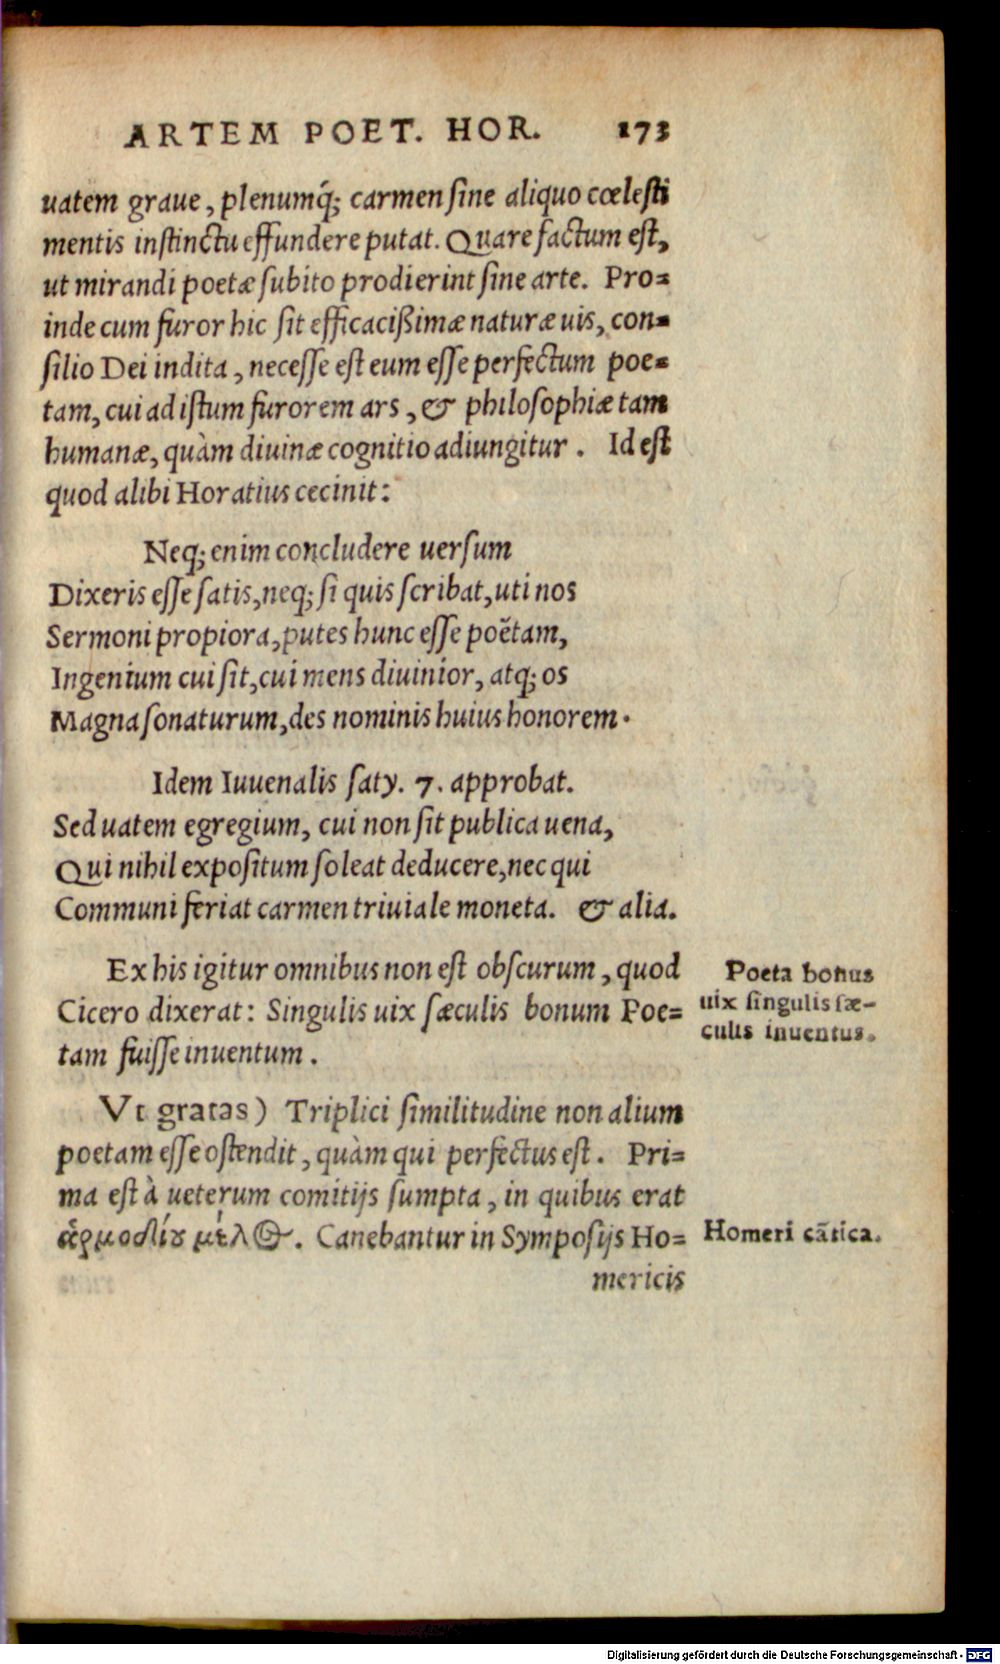 ARTEM POET. HOR. 173
uatem graue, plenumq́; carmen sine aliquo cœlesti
mentis instinctu effundere putat. Quare factum est,
ut mirandi poetæ subito prodierint sine arte. Pro=
inde cum furor hic sit efficacißimæ naturæ uis, con=
silio Dei indita, necesse est eum esse perfectum poe=
tam, cui ad istum furorem ars, & philosophiæ tam
humanæ, quàm diuinæ cognitio adiungitur. Id est
quod alibi Horatius cecinit:
Neq; enim concludere uersum
Dixeris esse satis, neq; si quis scribat, uti nos
Sermoni propiora, putes hunc esse poëtam,
Ingenium cui sit, cui mens diuinior, atq; os
Magna sonaturum, des nominis huius honorem.
Idem Iuuenalis saty. 7. approbat.
Sed uatem egregium, cui non sit publica uena,
Qui nihil expositum soleat deducere, nec qui
Communi feriat carmen triuiale moneta. & alia.
Ex his igitur omnibus non est obscurum, quod
Cicero dixerat: Singulis uix sæculis bonum Poe=
tam fuisse inuentum.
Poeta bonus
uix singulis sæ-
culis inuentus.
Vt gratas) Triplici similitudine non alium
poetam esse ostendit, quàm qui perfectus est. Pri=
ma est à ueterum comitijs sumpta, in quibus erat
Canebantur in Symposijs Ho=
Homeri cãtica.
mericis
Digitalisierung gefördert durch die Deutsche Forschungsgemeinschaft - DFG